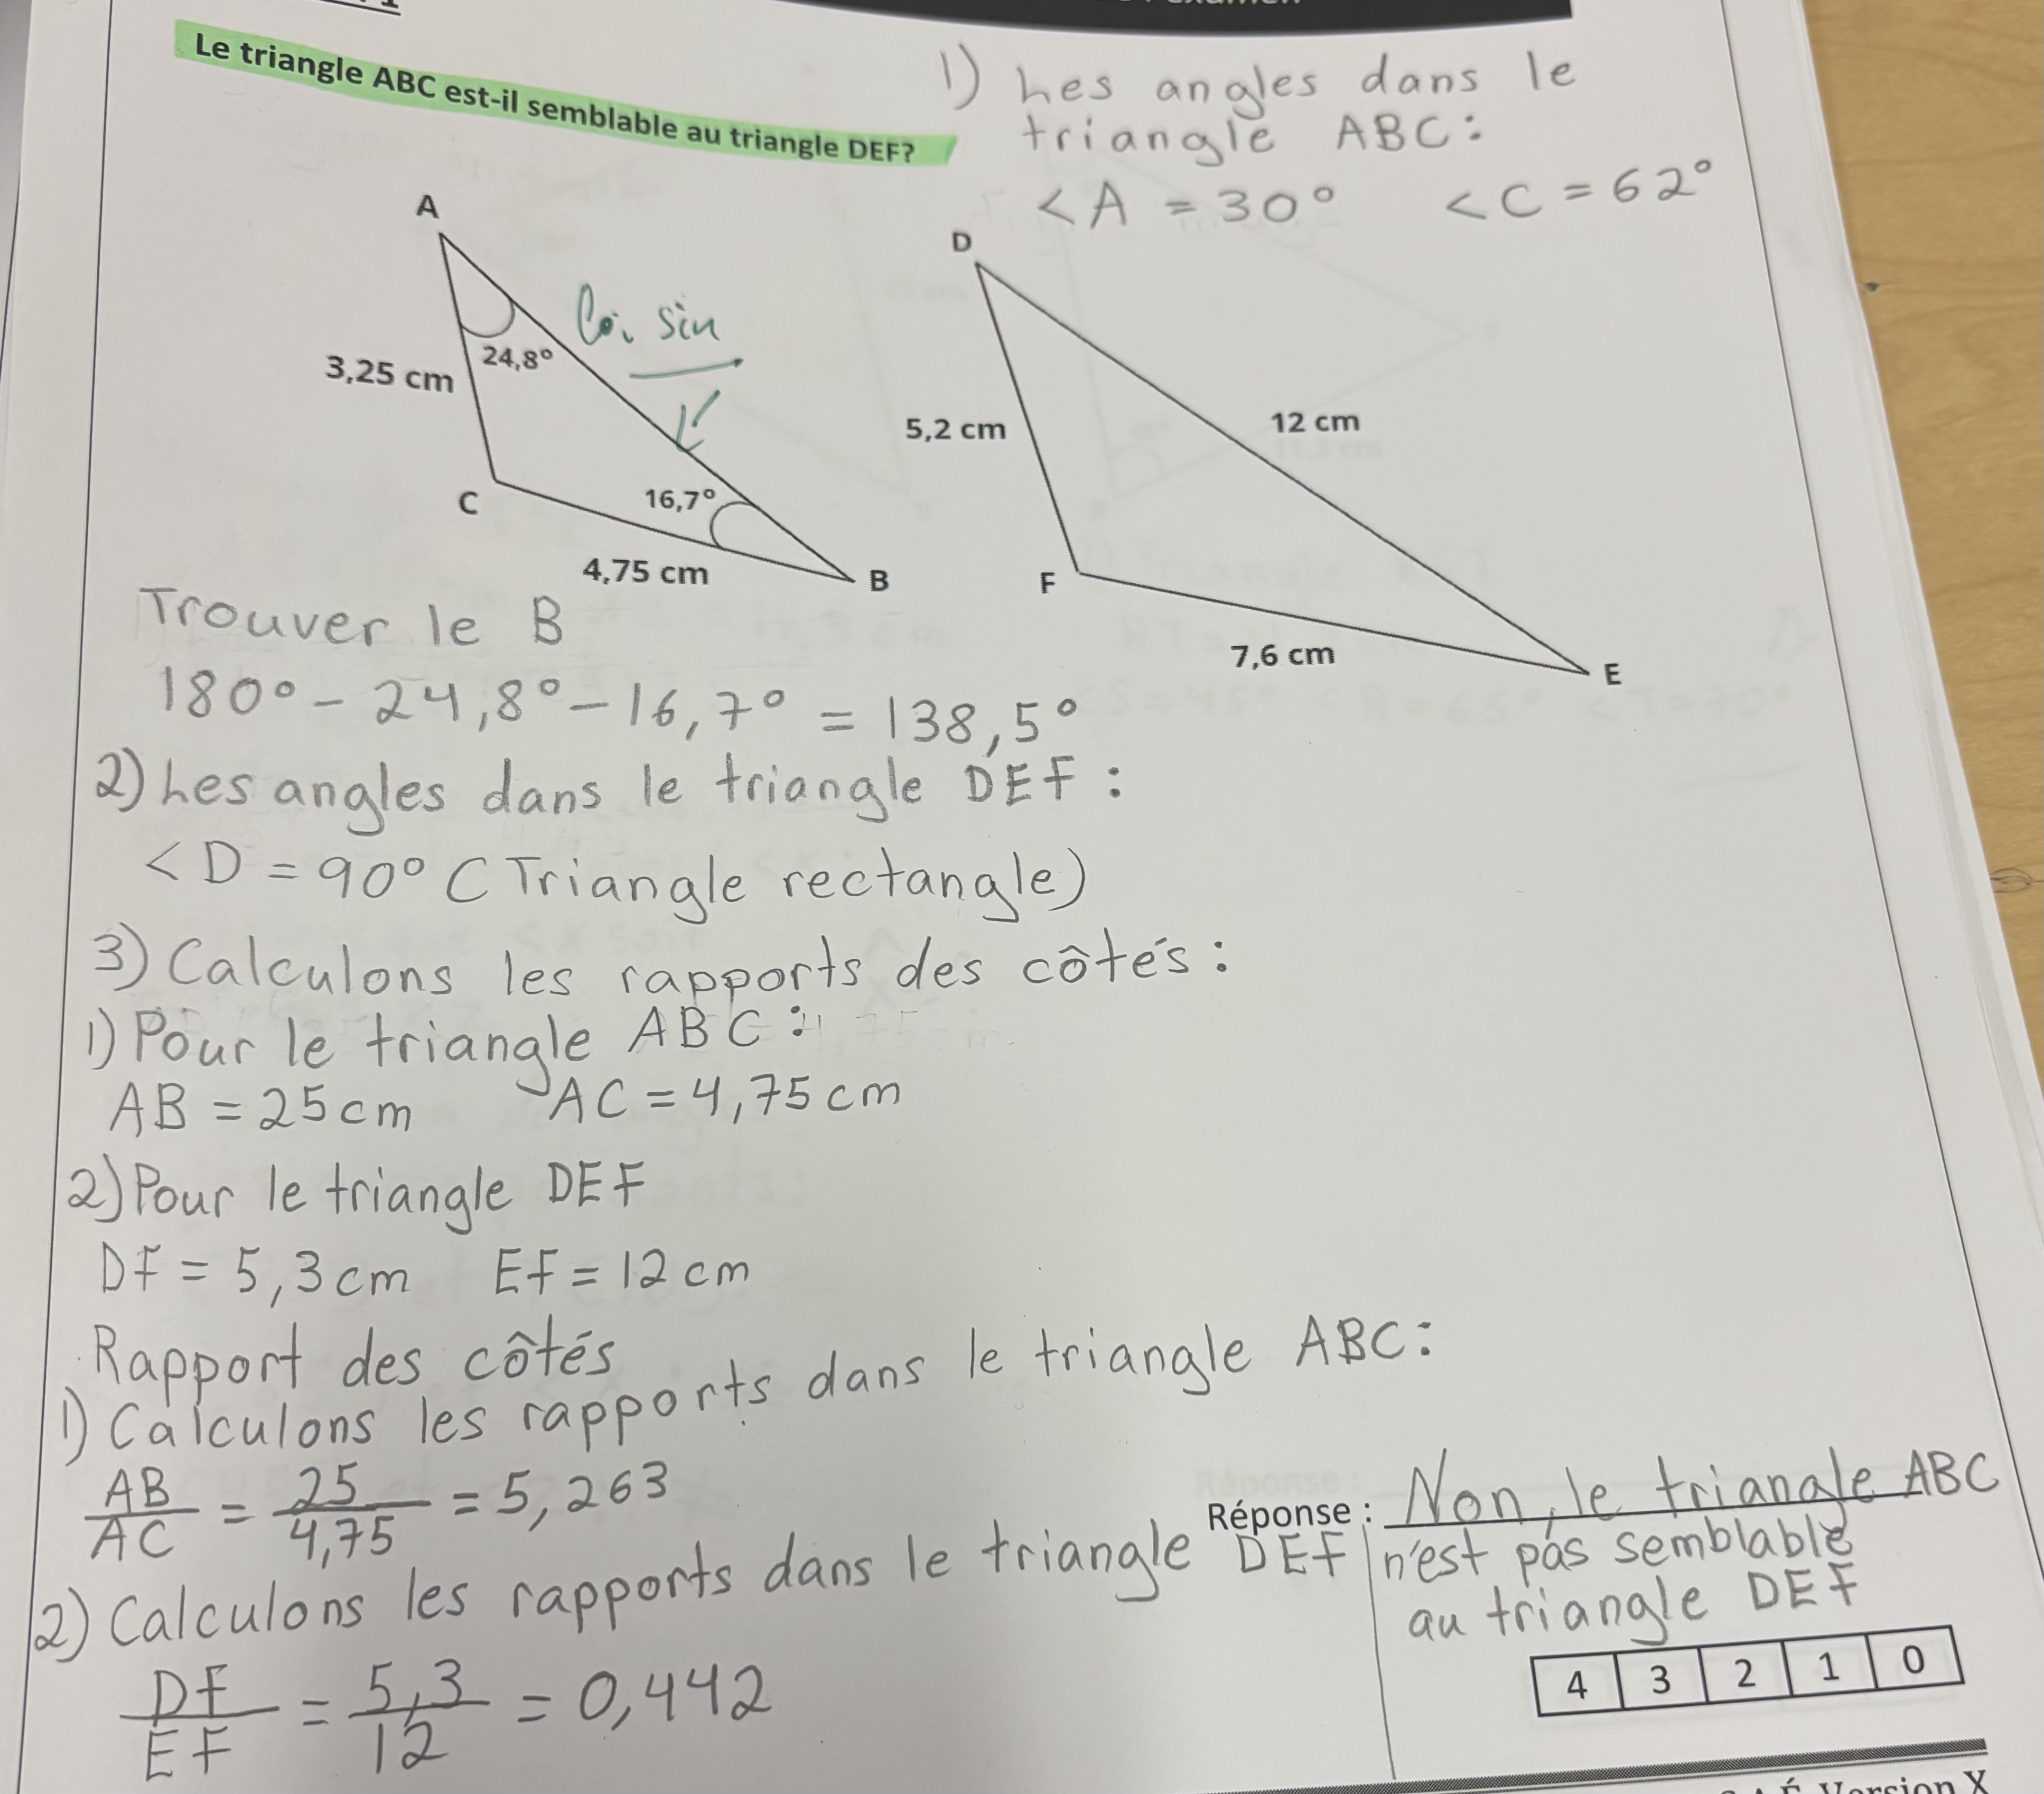 Le triangle ABC est-il semblable au triangle DEF?
1) Les angles dans le
triangle ABC:
<A = 30° <C = 62°
A
24,8°
3,25 cm
Loi sin
C
16,7°
4,75 cm
B
D
5,2 cm
12 cm
F
7,6 cm
E
Trouver le B
180° - 24,8° - 16,7° = 138,5°
2) Les angles dans le triangle DEF :
<D = 90° (Triangle rectangle)
3) Calculons les rapports des côtés :
1) Pour le triangle ABC :
AB = 25 cm AC = 4,75 cm
2) Pour le triangle DEF
DF = 5,3 cm EF = 12 cm
Rapport des côtés
1) Calculons les rapports dans le triangle ABC:
AB/AC = 25/4,75 = 5,263
2) Calculons les rapports dans le triangle DEF
DF/EF = 5,3/12 = 0,442
Réponse : Non, le triangle ABC
n'est pas semblable
au triangle DEF
4 3 2 1 0
Version X